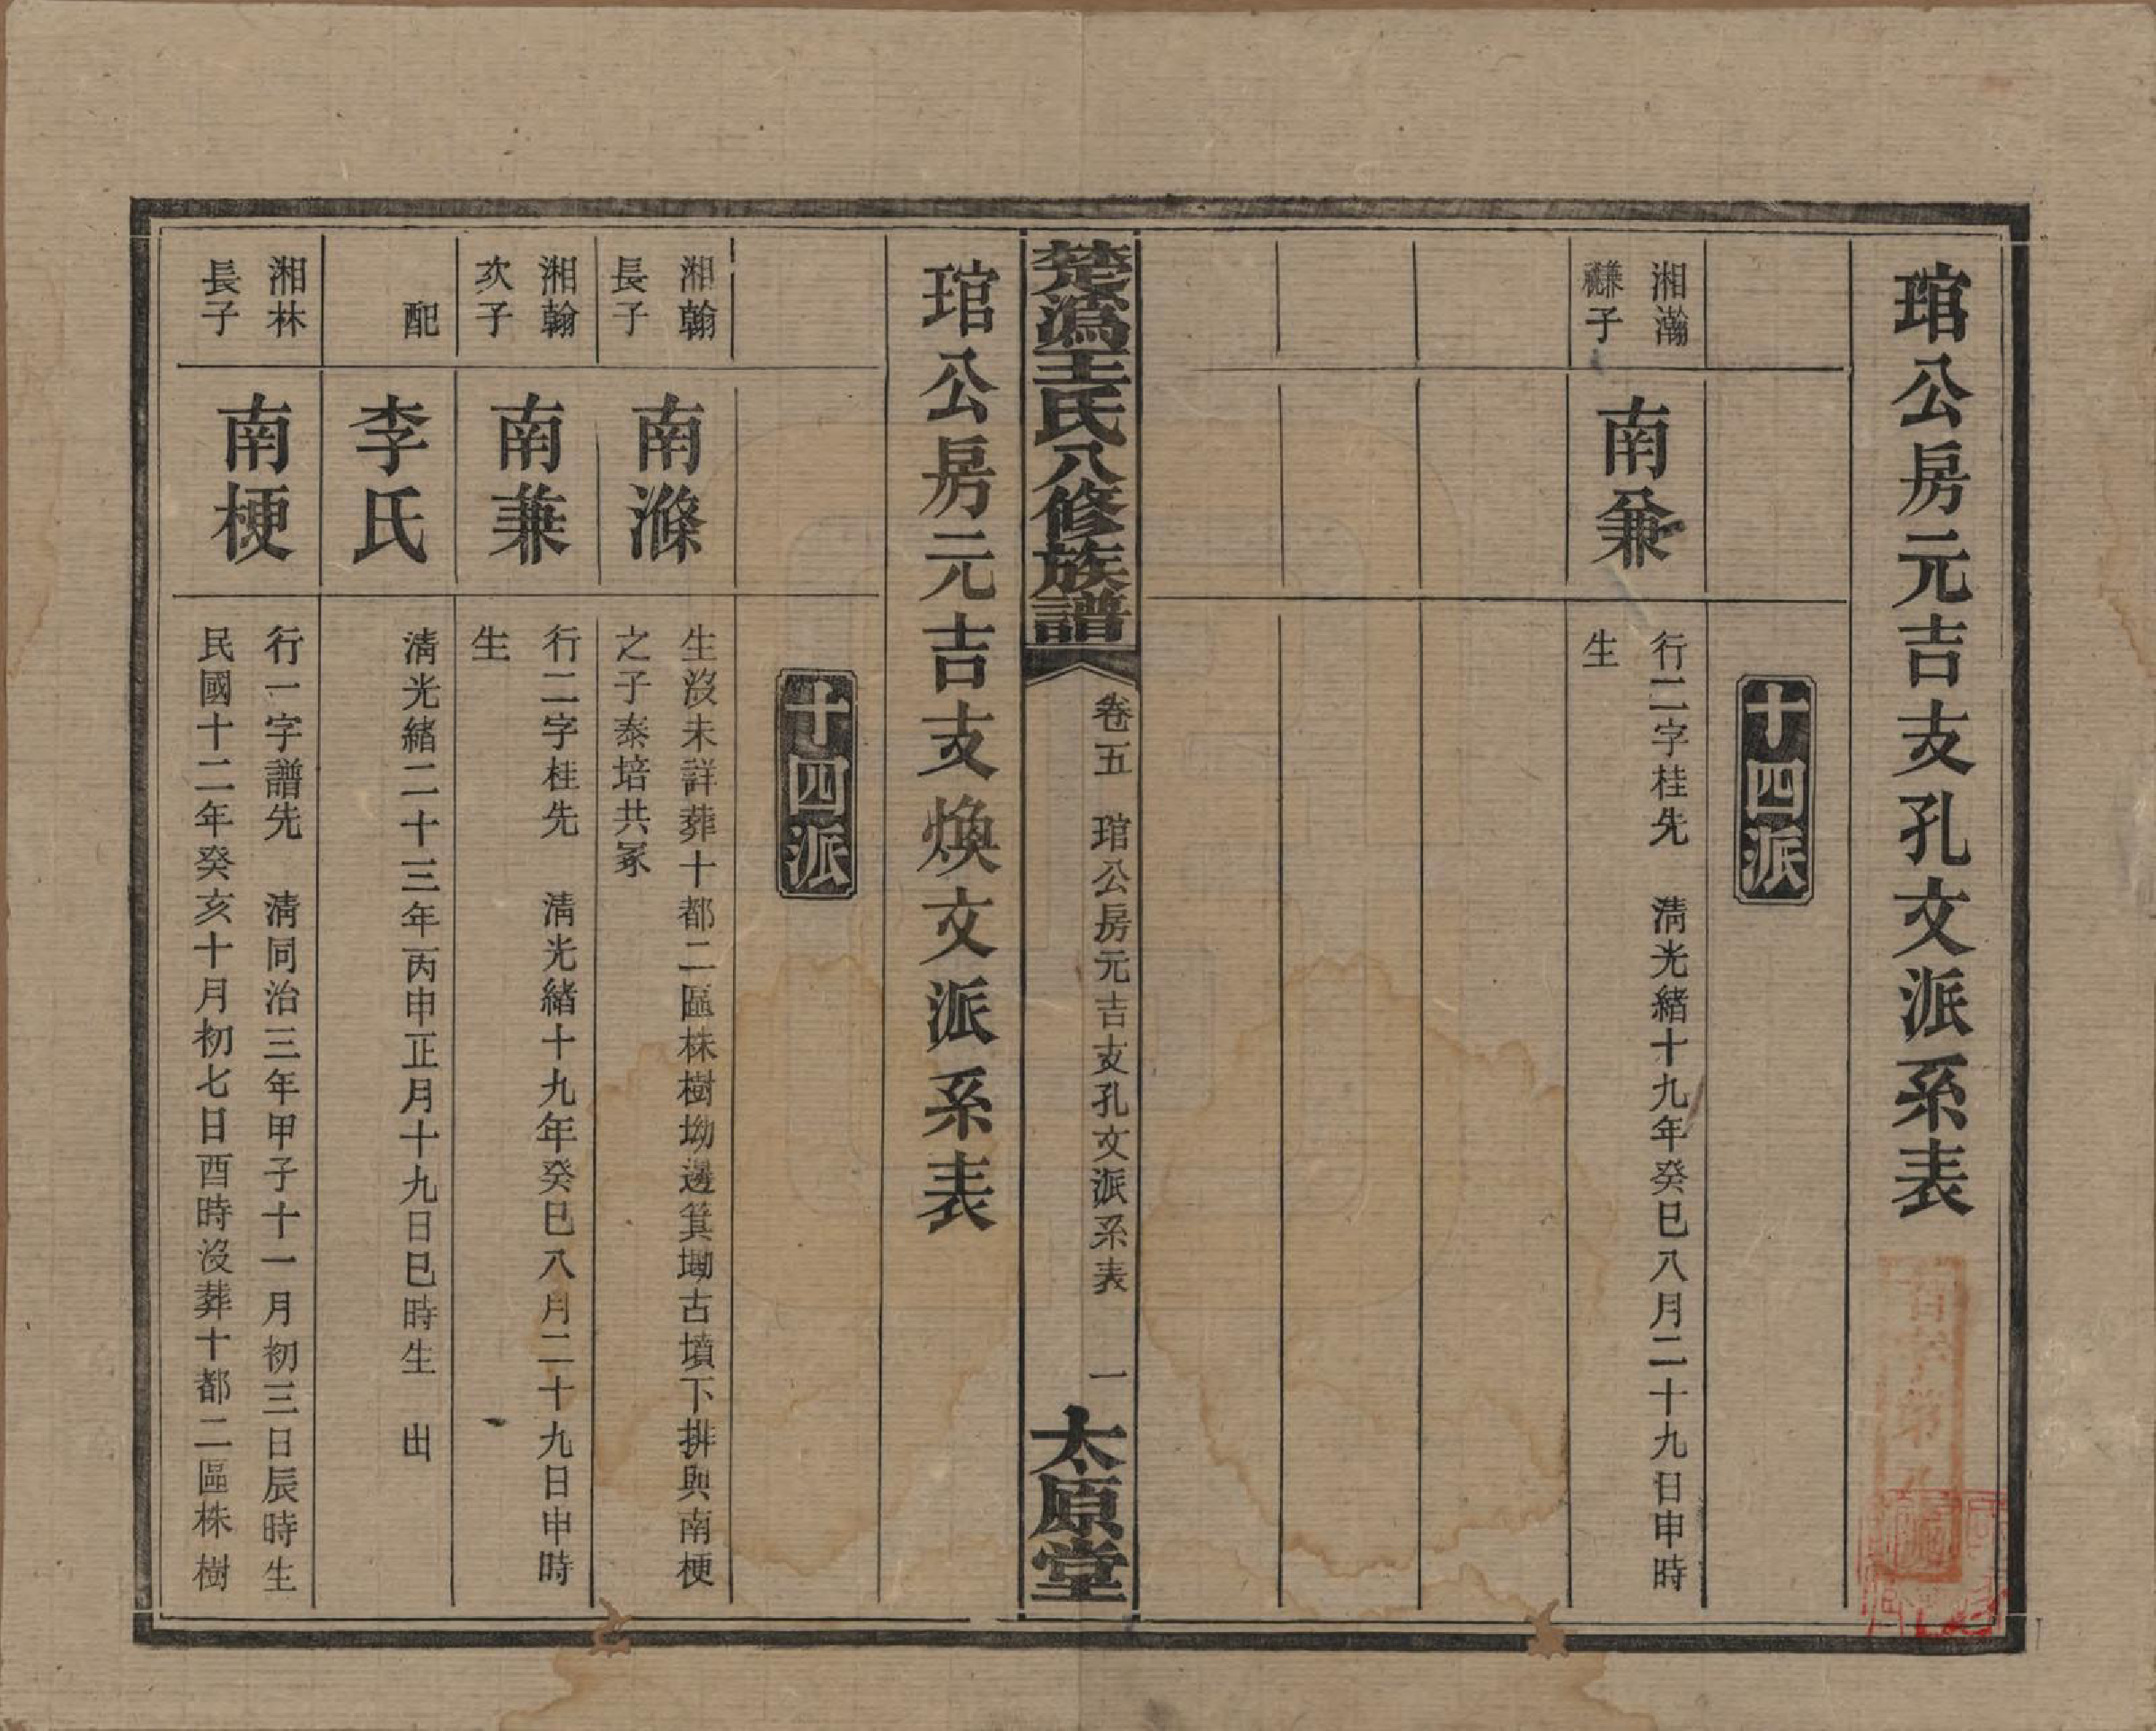 琯公房元吉支孔文派系表
十四派
湘瀚
兼子
南兼
行二字桂先　清光緒十九年癸巳八月二十九日申時
生
楚溈王氏八修族譜
卷五　琯公房元吉支孔文派系表　一
太原堂
琯公房元吉支煥文派系表
十四派
湘翰
長子
南滌
生沒未詳葬十都二區株樹坳邊箕墈古墳下排與南梗
之子泰培共冢
湘翰
次子
南兼
行二字桂先　清光緒十九年癸巳八月二十九日申時
生
配
李氏
清光緒二十三年丙申正月十九日巳時生　出
湘林
長子
南梗
行一字譜先　清同治三年甲子十一月初三日辰時生
民國十二年癸亥十月初七日酉時沒葬十都二區株樹